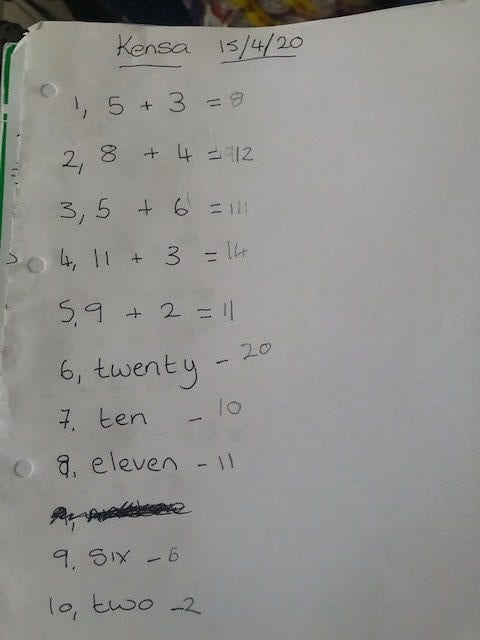 Kensa 15/4/20
1, 5 + 3 = 8
2, 8 + 4 = 12
3, 5 + 6 = 111
4, 11 + 3 = 14
5, 9 + 2 = 11
6, twenty - 20
7. ten - 10
8, eleven - 11
9. six - 6
10, two - 2